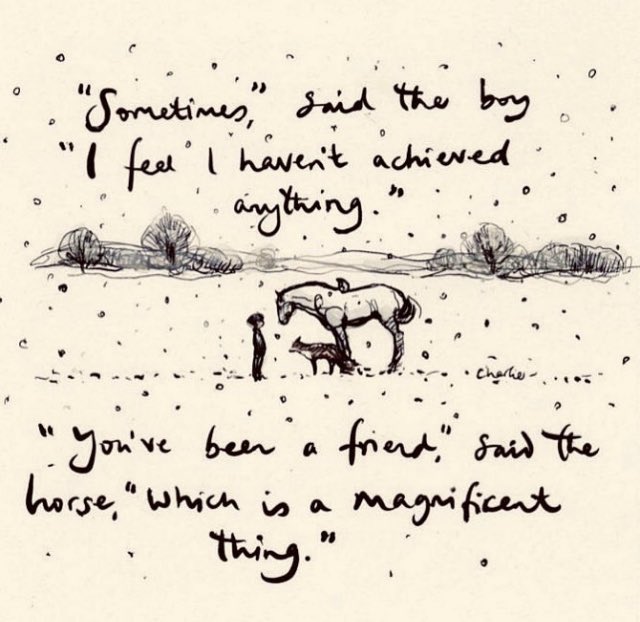 "Sometimes," said the boy
"I feel I haven't achieved
anything."
Charlie
"You've been a friend," said the
horse, "which is a magnificent
thing."